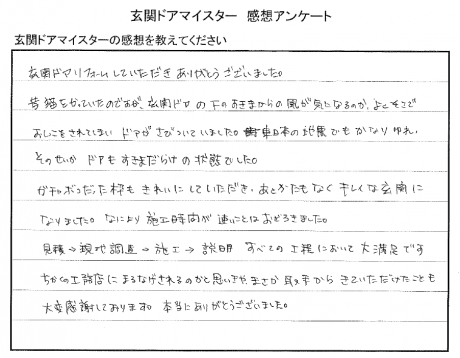 玄関ドアマイスター 感想アンケート
玄関ドアマイスターの感想を教えてください
玄関ドアリフォームしていただきありがとうございました。
昔猫をかっていたのですが、玄関ドアの下のすきまからの風が気になるのか、よくそこで
おしっこをされてしまい ドアがさびついていました。東日本の地震でもかなりゆれ、
そのせいか ドアもすきまだらけの状態でした。
ガチャガチャだった枠もきれいにしていただき、あとかたもなくキレイな玄関に
なりました。なにより施工時間が速いことはおどろきました。
見積→現地調査→施工→説明 すべての工程において大満足です
ちかくの工務店にまるなげされるのかと思いきや、まさか から きていただけたことも
大変感謝しております。本当にありがとうございました。